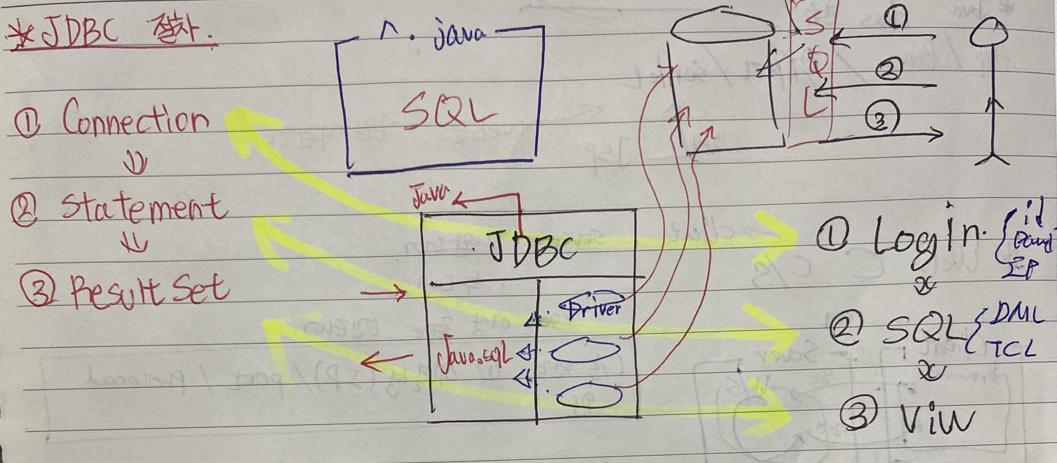 *JDBC 절차.
① Connection
⇓
② Statement
⇓
③ Result Set
n. java
SQL
SQL
①
②
③
Java
JDBC
Driver
Java.sql
① Login. { id
IP
② SQL { DML
TCL
③ Viw